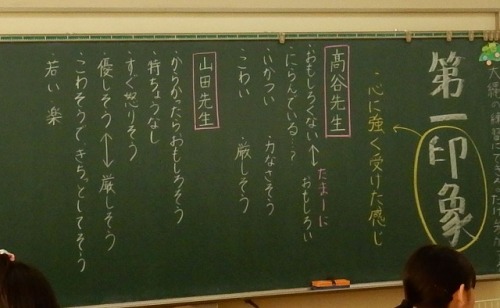 第一印象
・心に強く受けた感じ
高谷先生
・おもしろくない↔おもしろい
たまーに
・にらんでいる…?
・いかつい
・力なさそう
・こわい
・厳しそう
山田先生
・からかったらおもしろそう
・持ちょうなし
・すぐ怒りそう
・優しそう↔厳しそう
・こわそうできちっとしてそう
・若い・楽